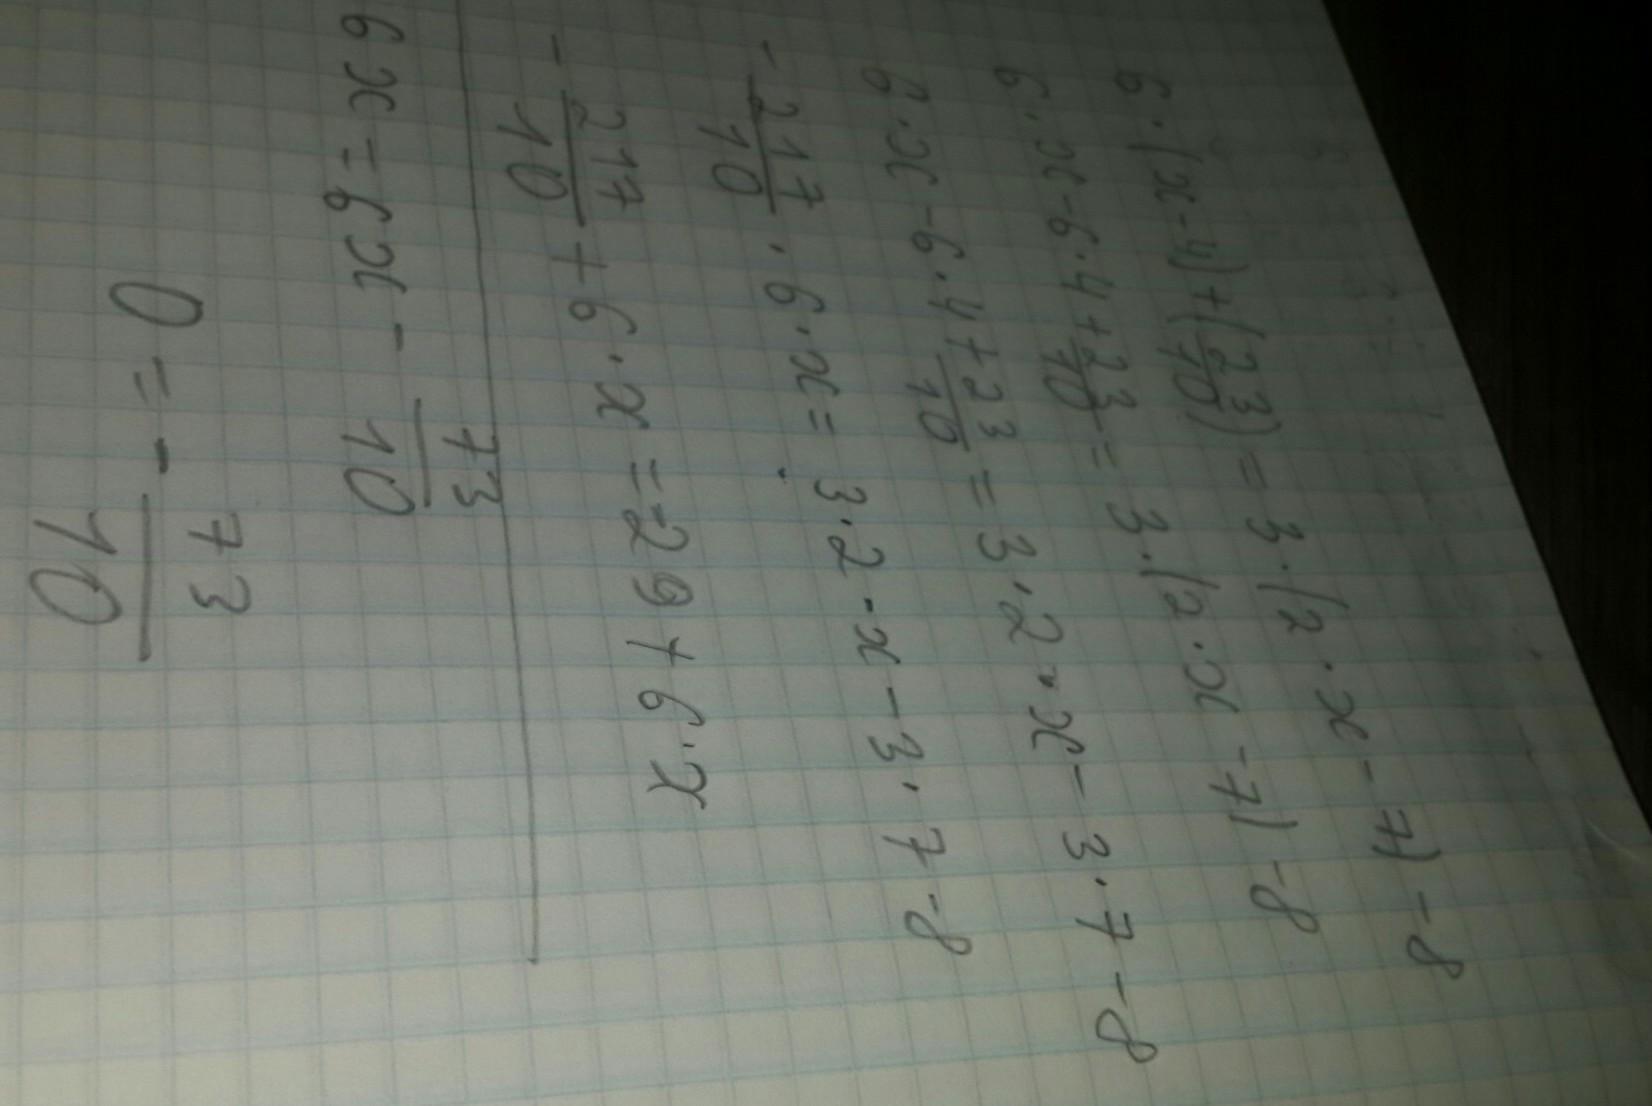 6·(x-4)+(23/10)=3·(2·x-7)-8
6·x-6·4+23/10=3·(2·x-7)-8
6·x-6·4+23/10=3·2·x-3·7-8
-217/10·6·x=3·2·x-3·7-8
-217/10+6·x=-29+6·x
6x=6x-73/10
0=-73/10